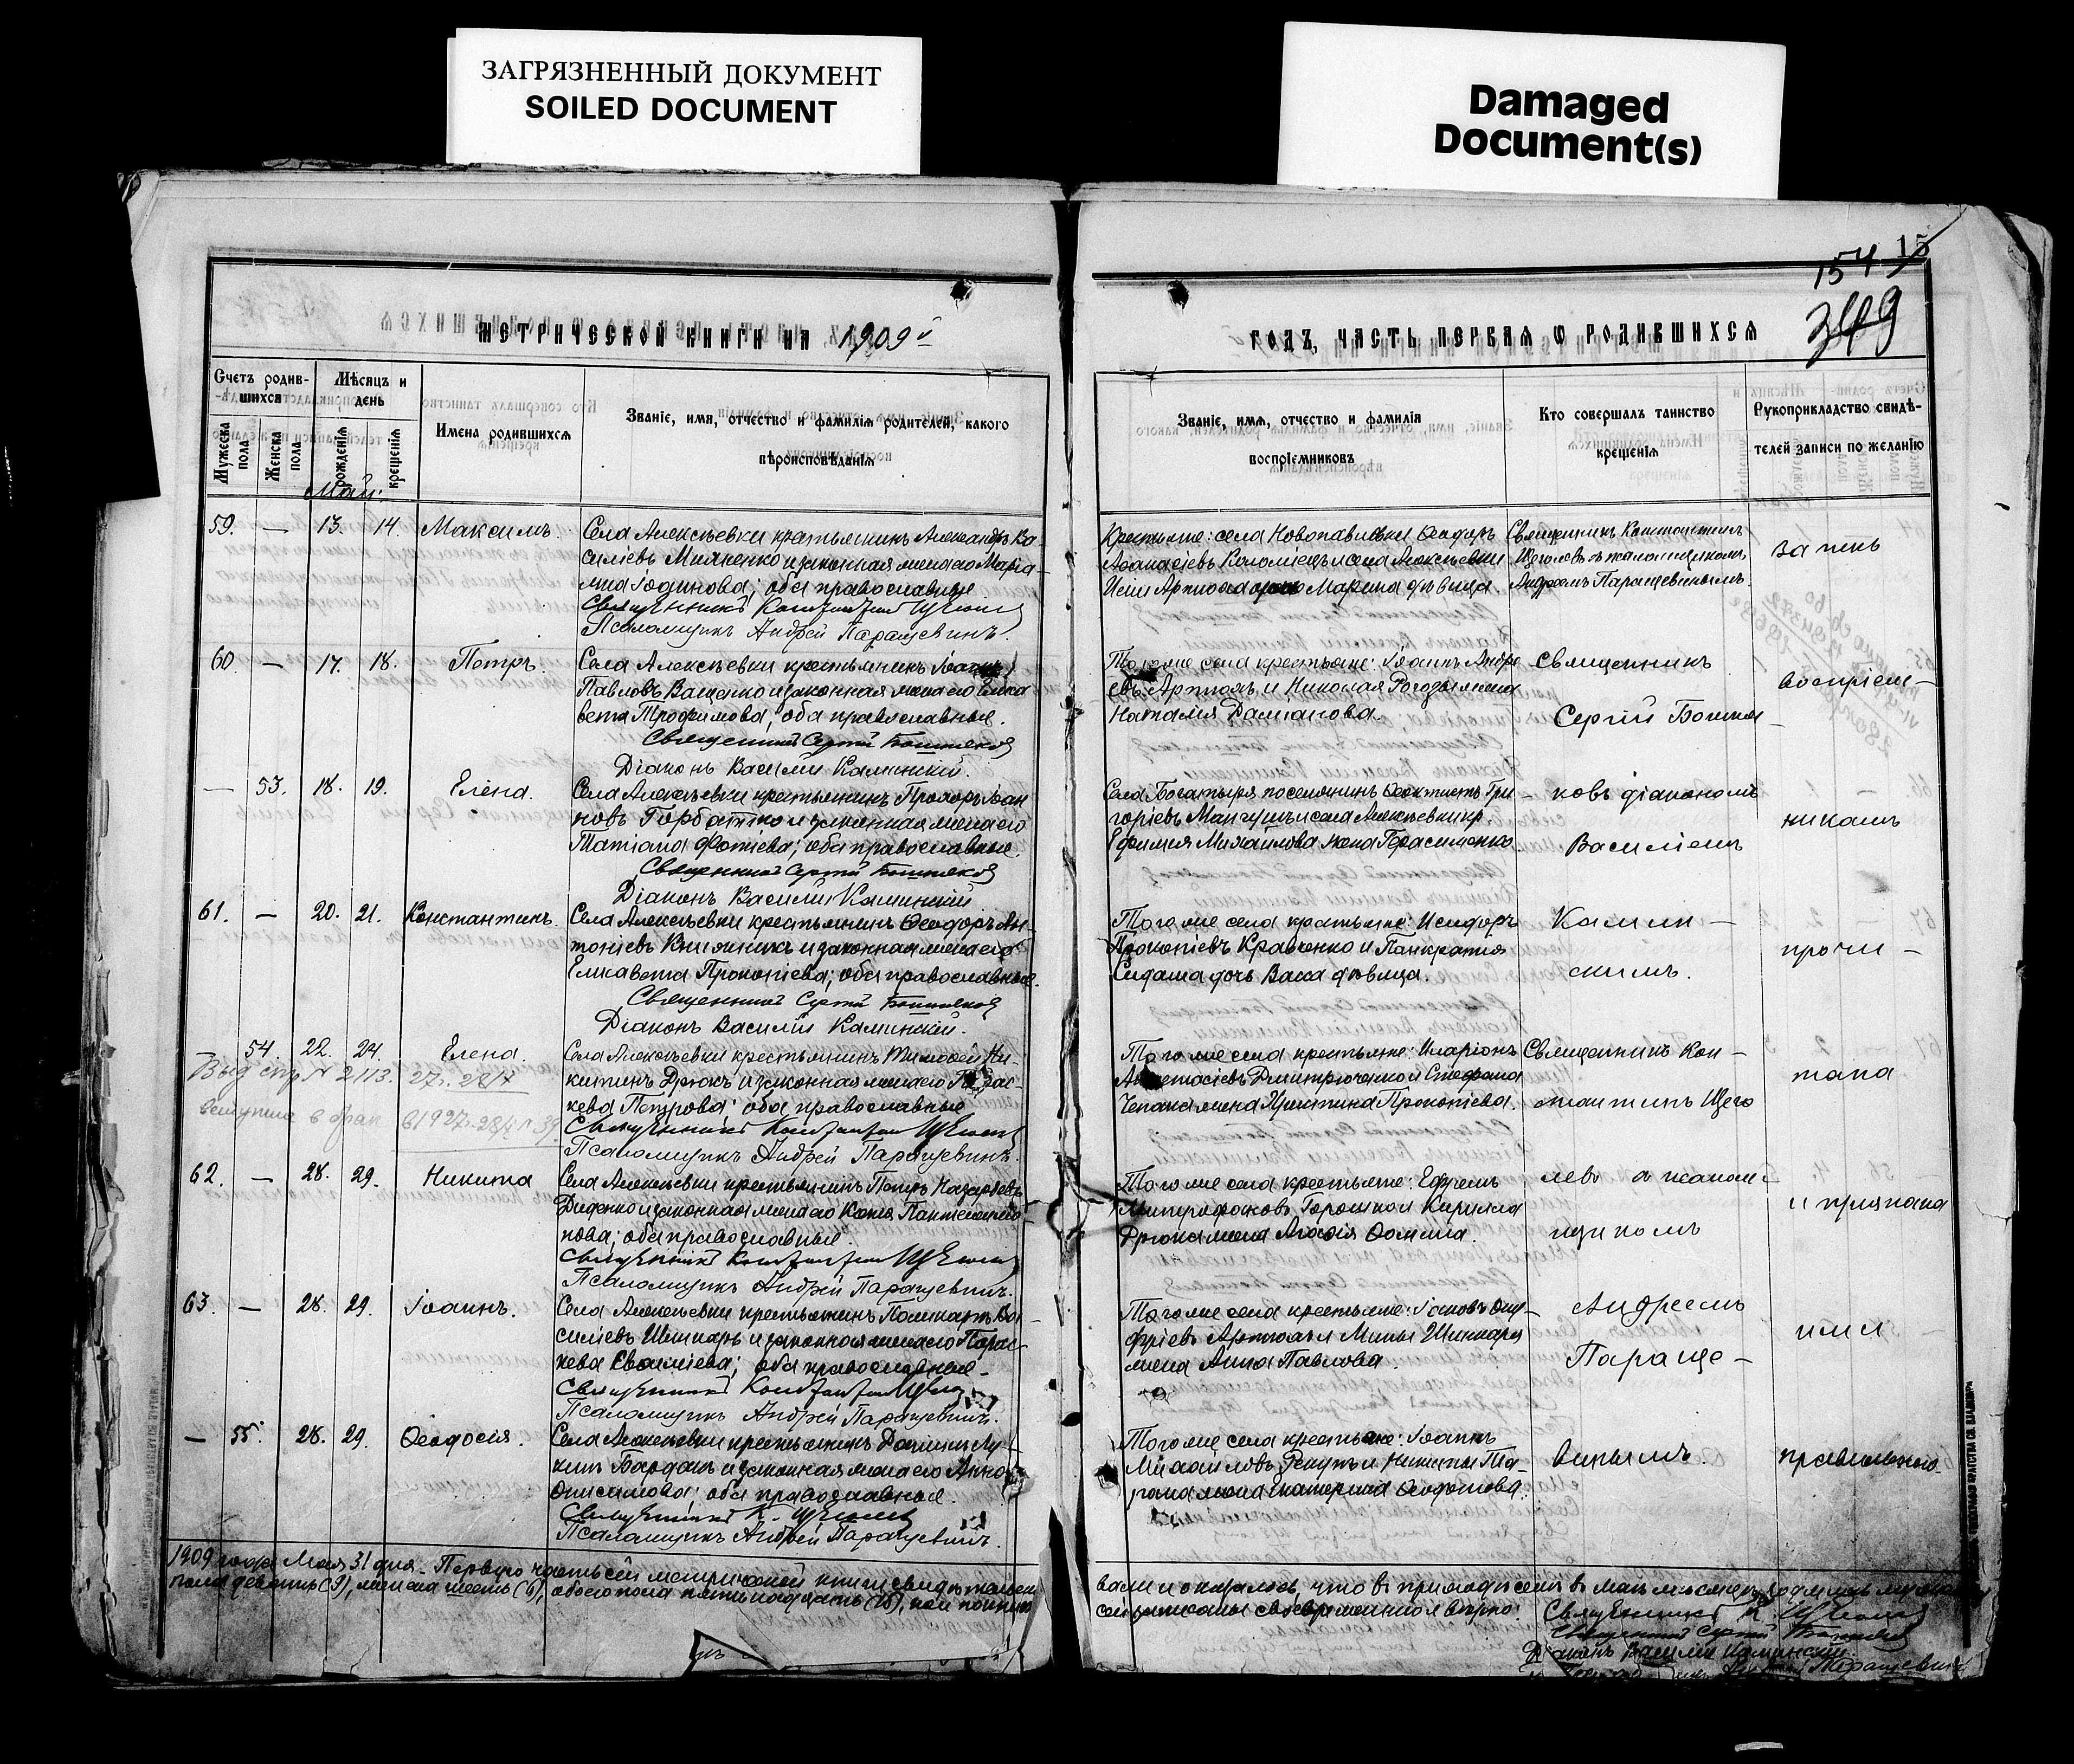 ЗАГРЯЗНЕННЫЙ ДОКУМЕНТ
SOILED DOCUMENT
Damaged
Document(s)
15
154
349
МЕТРИЧЕСКОЙ КНИГИ НА 1909й
ГОДЪ, ЧАСТЬ ПЕРВАЯ О РОДИВШИХСЯ
Счетъ родив-
шихся
Мѣсяцъ и
день
Мужеска пола
Женска пола
рожденія
крещенія
Имена родившихся
Званіе, имя, отчество и фамилія родителей, какого
вѣроисповѣданія
Званіе, имя, отчество и фамилія
воспріемниковъ
Кто совершалъ таинство
крещенія
Рукоприкладство свидѣ-
телей записи по желанію
Май.
59. — 13. 14. Максимъ.
Села Алексѣевки крестьянинъ Александръ Ва-
силіевъ Миляненко и законная жена его Марі-
Іодинова; оба православные
Священникъ Константинъ
Псаломщикъ Андрей Паращевинъ.
Крестьяне: села Новопавловки Ѳеодоръ
Аѳанасіевъ Коломіецъ и села Алексѣевки
Марина дѣвица
Священникъ Константинъ
Щеголевъ съ псаломщикомъ
Андреемъ Паращевинымъ.
запись
60 — 17. 18. Петръ.
Села Алексѣевки крестьянинъ Іоаннъ
Павловъ Ващенко и законная жена его Елиса-
вета Трофимова; оба православные.
Священникъ Сергій Бошняковъ
Діаконъ Василій Каминскій.
Того же села крестьяне: Іоаннъ Андре
евъ Артюхъ и Николая Рогозы жена
Наталія Даміанова.
Священникъ
Сергій Бошня-
воспріем-
— 53. 18. 19. Елена.
Села Алексѣевки крестьянинъ Прохоръ Іоан
новъ Горбатко и законная жена его
Татіана Фотіева; оба православные.
Священникъ Сергій Бошняковъ
Діаконъ Василій Каминскій
Села Богатыря поселянинъ Ѳеоктистъ Гри-
горіевъ Мангушъ и села Алексѣевки кр.
Ефимія Михайлова жена Герасименко.
ковъ діакономъ
Василіемъ
никамъ
61. — 20. 21. Константинъ.
Села Алексѣевки крестьянинъ Ѳеодоръ Ан-
тоніевъ и законная жена его
Елисавета Прокопіева; оба православные.
Священникъ Сергій Бошняковъ
Діаконъ Василій Каминскій.
Того же села крестьяне: Исидоръ
Прокопіевъ Кравченко и Панкратія
Сидаша дочь Васса дѣвица.
Камин-
скимъ.
прочи-
— 54. 22. 24. Елена.
Села Алексѣевки крестьянинъ Тимоѳей Ни-
китинъ Дрюкъ и законная жена его Парас-
кева Петрова; оба православные
Священникъ Константинъ
Псаломщикъ Андрей Паращевинъ.
Того же села крестьяне: Иларіонъ
Анастасіевъ Дмитрюченко и Стефана
Чепака жена Христина Прокопіева.
Священникъ Кон-
стантинъ Щего
тана
№ 2113.
вступила в брак
62. — 28. 29. Никита
Села Алексѣевки крестьянинъ Петръ Назаріевъ
Диденко и законная жена его Ксенія Пантелеймо-
нова; оба православные.
Священникъ Константинъ
Псаломщикъ Андрей Паращевинъ.
Того же села крестьяне: Ефремъ
Митрофановъ Горошко и Кирилла
Дрюка жена Агаѳія Ѳомина.
левъ съ псалом-
щикомъ
и признана
63. — 28. 29. Іоаннъ.
Села Алексѣевки крестьянинъ Поликарпъ Ва-
силіевъ Шинкарь и законная жена его Парас-
кева Евсиміева; оба православные.
Священникъ Константинъ
Псаломщикъ Андрей Паращевинъ.
Того же села крестьяне: Іаковъ Ону-
фріевъ Артюхъ и Мины Шинкаря
жена Анна Павлова.
Андреемъ
Параще-
ими
— 55. 28. 29. Ѳеодосія.
Села Алексѣевки крестьянинъ Даніилъ Лу-
кинъ Бардакъ и законная жена его Анна
Онисимова; оба православные.
Священникъ К.
Псаломщикъ Андрей Паращевинъ.
Того же села крестьяне: Іоаннъ
Михаиловъ и Никиты Та-
рана жена Екатерина Ѳеофанова.
винымъ.
правильною.
1909 года Мая 31 дня. Первую часть сей метрической книги свидѣтельст
вовали и оказалось, что въ приходѣ семъ въ маѣ мѣсяцѣ родилось мужеска
пола девять (9), женска шесть (6), обоего пола пятнадцать (15), кои по книгѣ
сей записаны своевременно и вѣрно.
Священникъ К.
Священникъ Сергій Бошняковъ
Діаконъ Василій Каминскій.
Андрей Паращевинъ